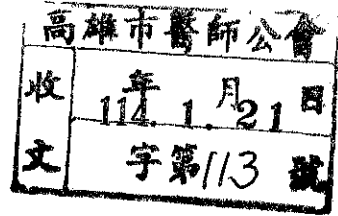 高雄市醫師公會
收文
年 月 日
114. 1. 21
字第113號